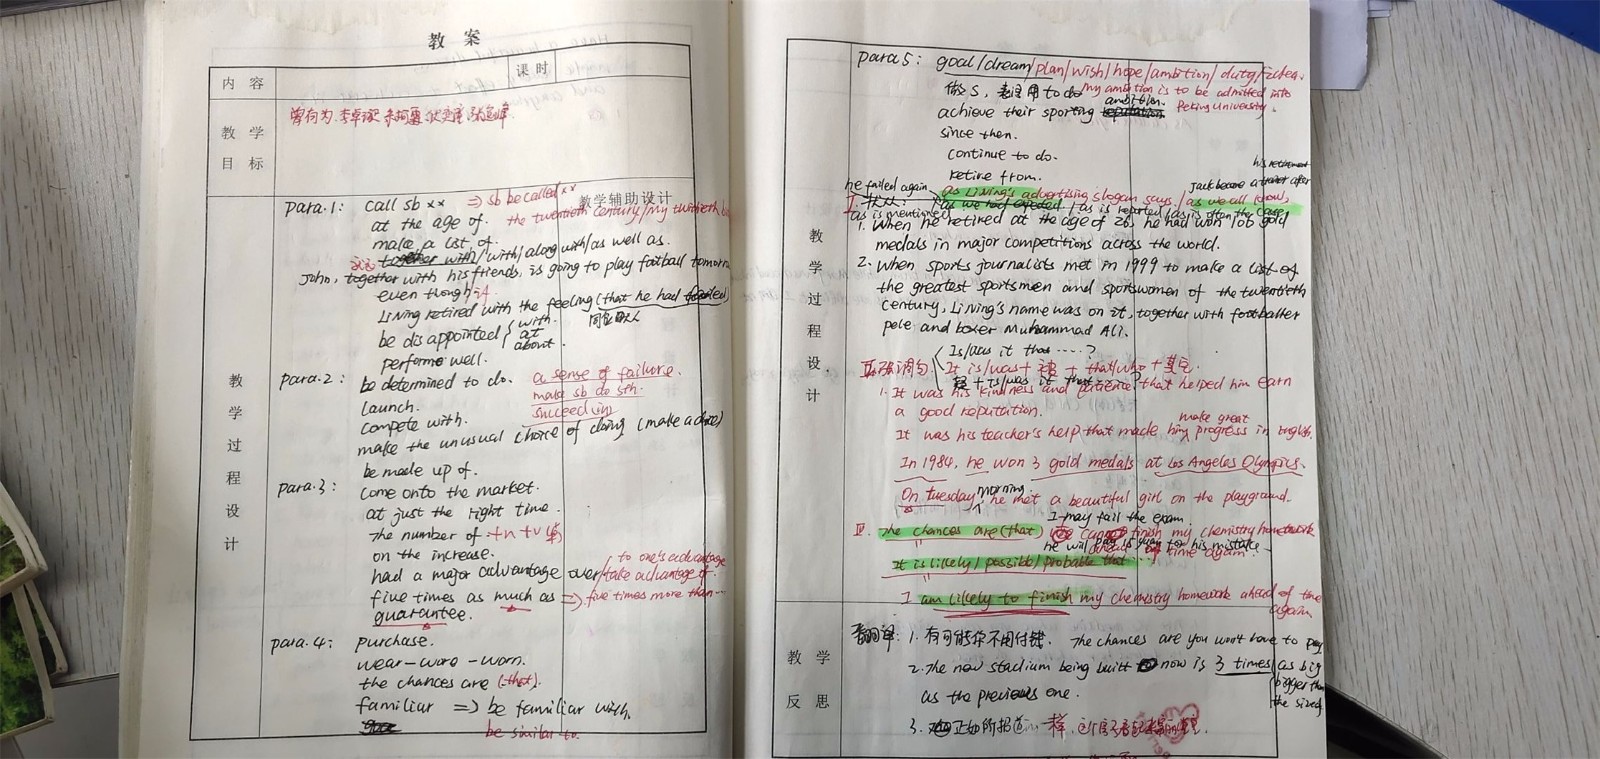 教案
课时
内容
教学
目标
教学辅助设计
Para.1: call sb xx => sb be called xx
at the age of. the twentieth century/my twentieth
make a list of.
together with/with/along with/as well as.
John, together with his friends, is going to play football
even though
Li Ning retired with the feeling (that he had failed)
同位语从句
be disappointed { with. at about.
perform well.
Para.2: be determined to do. a sense of failure.
make sb do sth.
Launch. succeed in
compete with.
make the unusual choice of doing (make a choice)
be made up of.
Para.3: come onto the market.
at just the right time.
the number of +n +v
on the increase.
to one's advantage
had a major advantage over/take advantage of.
five times as much as => five times more than
guarantee.
Para.4: purchase.
wear-wore-worn.
the chances are (that).
familiar => be familiar with.
be similar to.
教学过程设计
Para 5: goal/dream/plan/wish/hope/ambition/duty/
to do My ambition is to be admitted into
Peking University.
achieve their sporting ambition.
since then.
continue to do.
retire from.
his retirement
he failed again
as Li Ning's advertising slogan says/as we all know,
as we had expected, as is reported/as is often the case,
as is mentioned
1. When he retired at the age of 26, he had won 106 gold
medals in major competitions across the world.
2. When sports journalists met in 1999 to make a list of
the greatest sportsmen and sportswomen of the twentieth
century, Li Ning's name was on it, together with footballer
Pele and boxer Muhammad Ali.
Is/was it that ....?
II. 强调句: It is/was + + that/who + 其它.
+ is/was it that
1. It was his kindness and patience that helped him earn
a good reputation.
make great
It was his teacher's help that made him progress in English.
In 1984, he won 3 gold medals at Los Angeles Olympics.
On Tuesday morning, he met a beautiful girl on the playground.
I may fail the exam.
III. The chances are (that) finish my chemistry homework
he will for his mistake
time again.
It is likely/possible/probable that
I am likely to finish my chemistry homework ahead of time
again.
教学过程设计
翻译: 1. 有可能你不用付钱. The chances are you won't have to pay
2. The new stadium being built now is 3 times as big
as the previous one. bigger than
the size of
3. 正如所报道 一样,
教学
反思